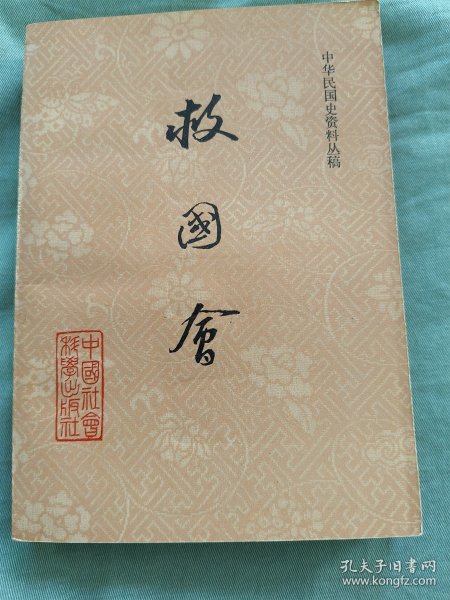 中华民国史资料丛稿
救國會
中國社會
科學出版社
孔夫子旧书网
www.kongfz.com